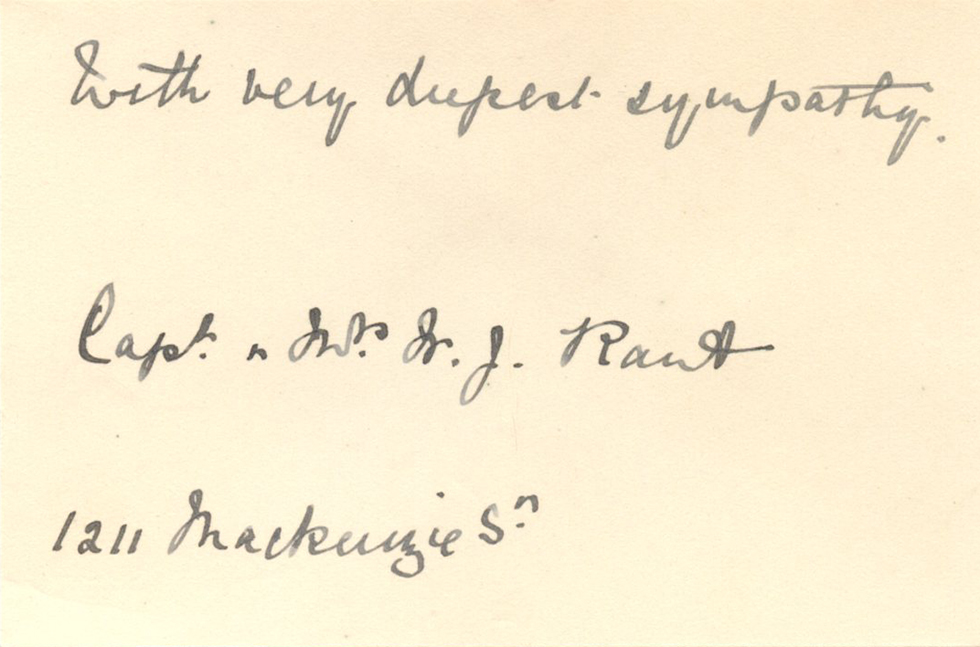 With very deepest sympathy.
Capt. & Mrs. W. J. Rant
1211 Mackenzie St.